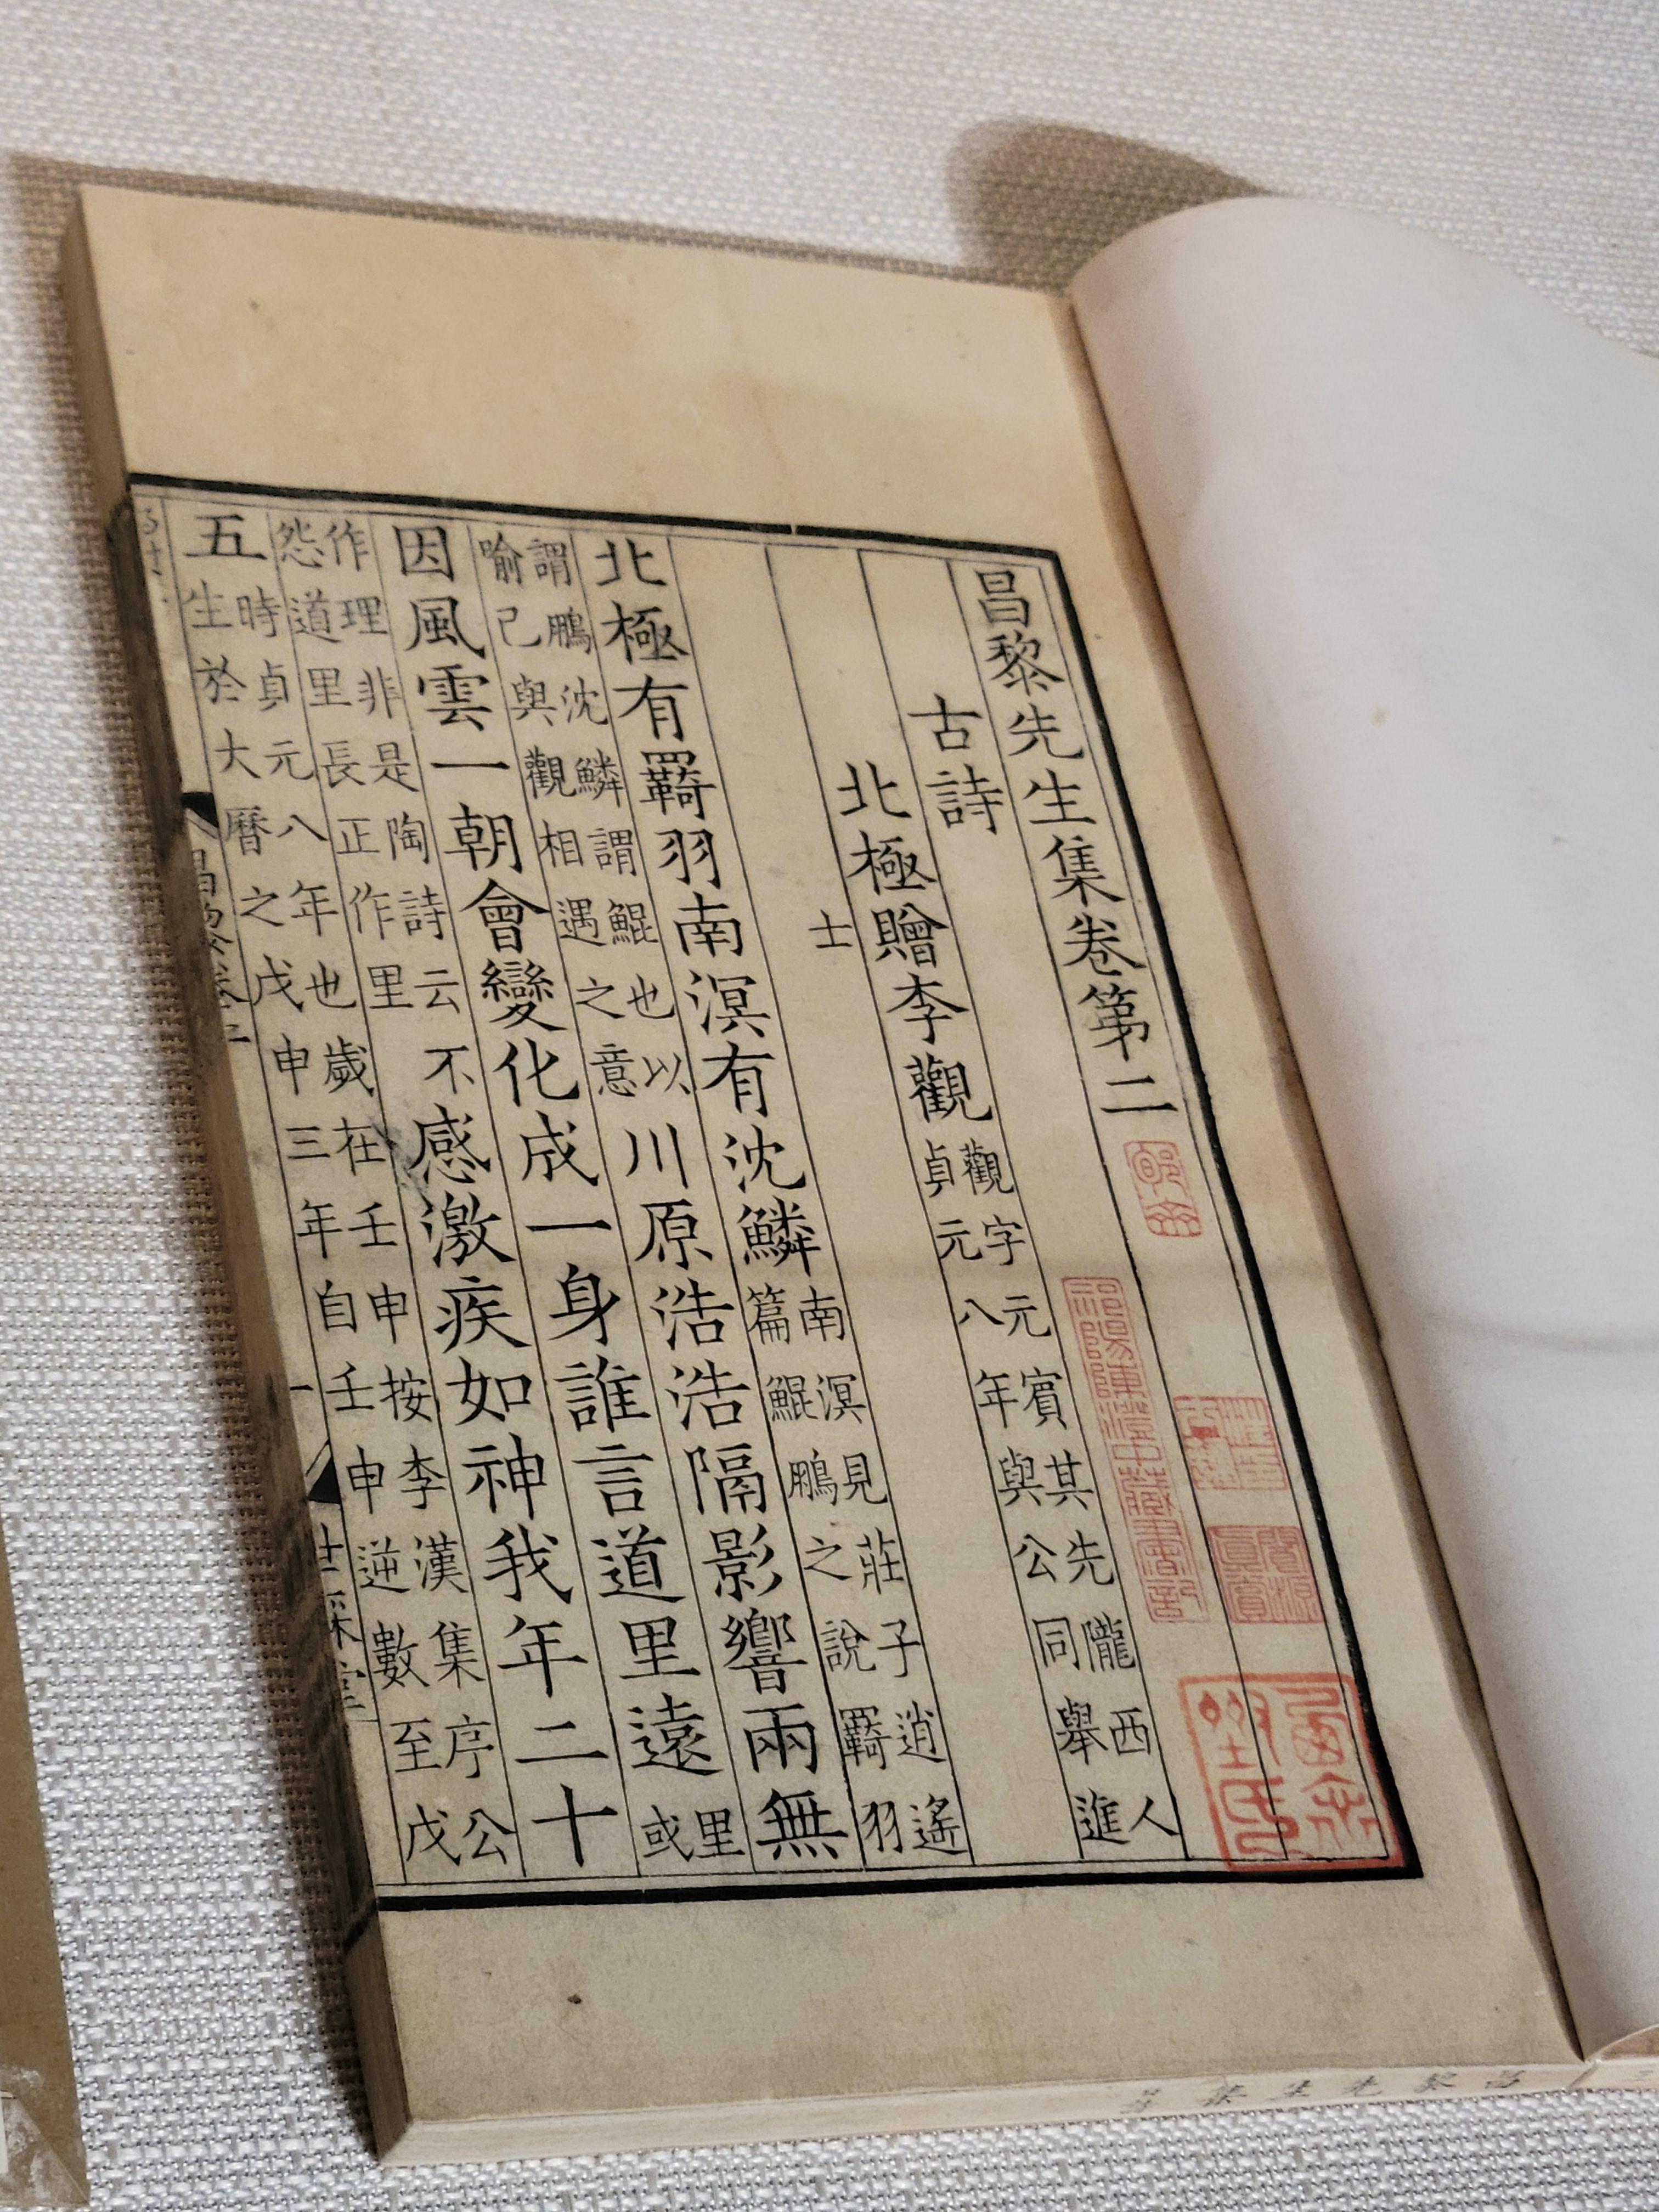 昌黎先生集卷第二
古詩
北極贈李觀
觀字元賓其先隴西人
貞元八年與公同舉進
士
北極有羇羽南溟有沈鱗
南溟見莊子逍遙
篇鯤鵬之說羇羽
謂鵬沈鱗謂鯤也以
喻己與觀相遇之意
川原浩浩隔影響兩無
因風雲一朝會變化成一身誰言道里遠
里
或
作理非是陶詩云不
怨道里長正作里
感激疾如神我年二十
五
時貞元八年也歲在壬申按李漢集序公
生於大曆之戊申三年自壬申逆數至戊
祁陽陳澄中藏書記
昌黎先生集